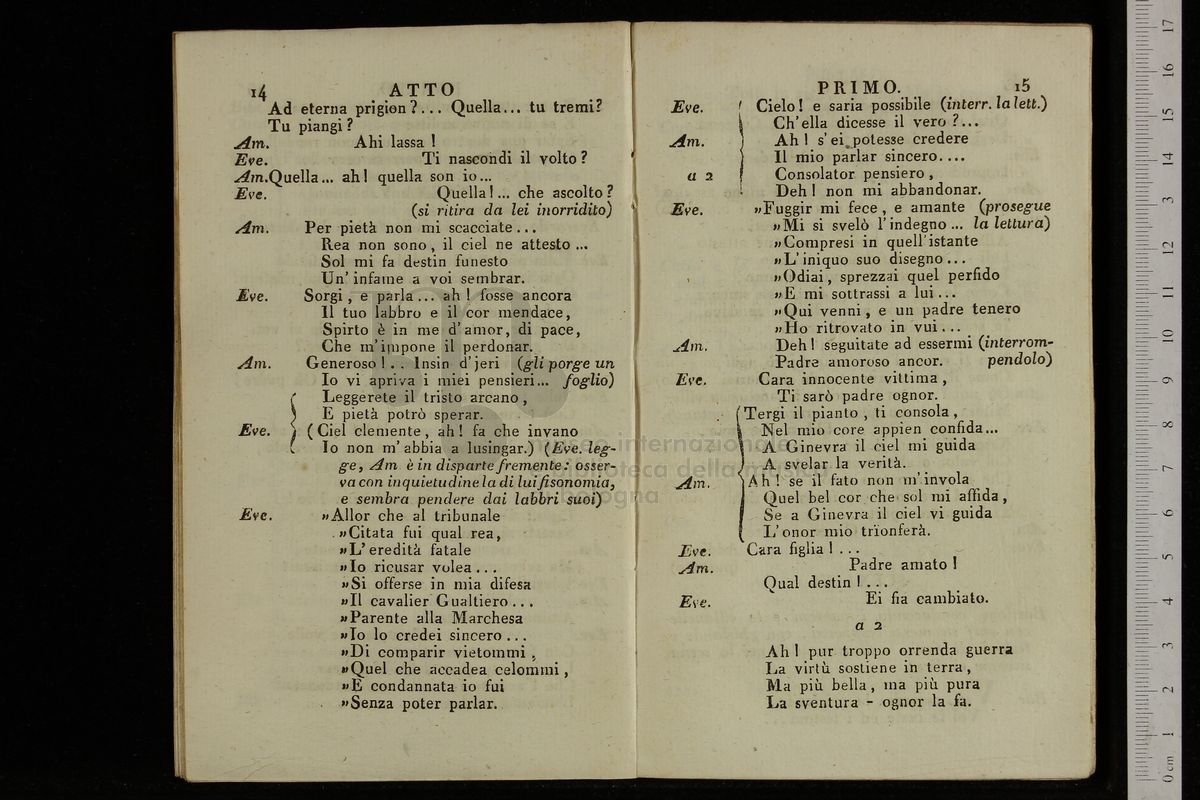 14 ATTO
Ad eterna prigion?... Quella... tu tremi?
Tu piangi?
Am. Ahi lassa!
Eve. Ti nascondi il volto?
Am. Quella... ah! quella son io...
Eve. Quella!... che ascolto?
(si ritira da lei inorridito)
Am. Per pietà non mi scacciate...
Rea non sono, il ciel ne attesto...
Sol mi fa destin funesto
Un' infame a voi sembrar.
Eve. Sorgi, e parla... ah! fosse ancora
Il tuo labbro e il cor mendace,
Spirto è in me d'amor, di pace,
Che m'impone il perdonar.
Am. Generoso!.. Insin d'jeri (gli porge un
Io vi apriva i miei pensieri... foglio)
Leggerete il tristo arcano,
E pietà potrò sperar.
Eve. (Ciel clemente, ah! fa che invano
Io non m'abbia a lusingar.) (Eve. leg-
ge, Am è in disparte fremente: osser-
va con inquietudine la di lui fisonomia,
e sembra pendere dai labbri suoi)
Eve. »Allor che al tribunale
»Citata fui qual rea,
»L'eredità fatale
»Io ricusar volea...
»Si offerse in mia difesa
»Il cavalier Gualtiero...
»Parente alla Marchesa
»Io lo credei sincero...
»Di comparir vietommi,
»Quel che accadea celommi,
»E condannata io fui
»Senza poter parlar.
PRIMO. 15
Eve. Cielo! e saria possibile (interr. la lett.)
Ch'ella dicesse il vero?...
Am. Ah! s'ei potesse credere
Il mio parlar sincero....
a 2 Consolator pensiero,
Deh! non mi abbandonar.
Eve. »Fuggir mi fece, e amante (prosegue
»Mi si svelò l'indegno... la lettura)
»Compresi in quell'istante
»L'iniquo suo disegno...
»Odiai, sprezzai quel perfido
»E mi sottrassi a lui...
»Qui venni, e un padre tenero
»Ho ritrovato in vui...
Am. Deh! seguitate ad essermi (interrom-
Padre amoroso ancor. pendolo)
Eve. Cara innocente vittima,
Ti sarò padre ognor.
Tergi il pianto, ti consola,
Nel mio core appien confida...
A Ginevra il ciel mi guida
A svelar la verità.
Am. Ah! se il fato non m'invola
Quel bel cor che sol mi affida,
Se a Ginevra il ciel vi guida
L'onor mio trionferà.
Eve. Cara figlia!...
Am. Padre amato!
Qual destin!...
Eve. Ei fia cambiato.
a 2
Ah! pur troppo orrenda guerra
La virtù sostiene in terra,
Ma più bella, ma più pura
La sventura - ognor la fa.
museo internazionale
biblioteca della musica
bologna
0 cm 1 2 3 4 5 6 7 8 9 10 11 12 13 14 15 16 17